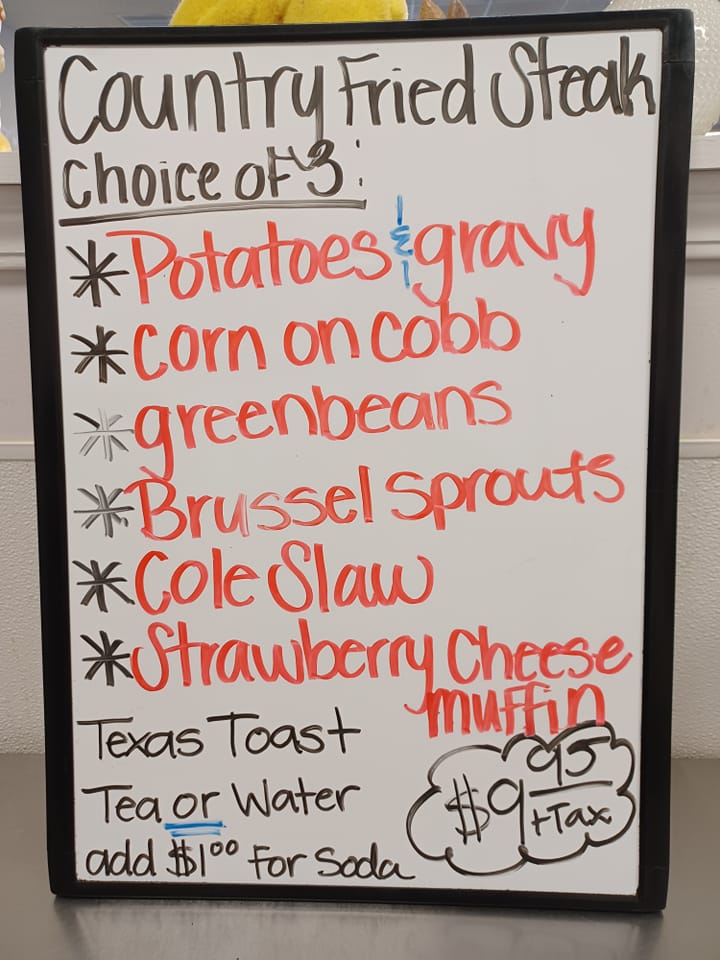 Country Fried Steak
Choice of 3:
* Potatoes & gravy
* corn on cobb
* greenbeans
* Brussel sprouts
* Cole Slaw
* Strawberry Cheese
muffin
Texas Toast
Tea or Water
add $1.00 for Soda
$9.95
+Tax